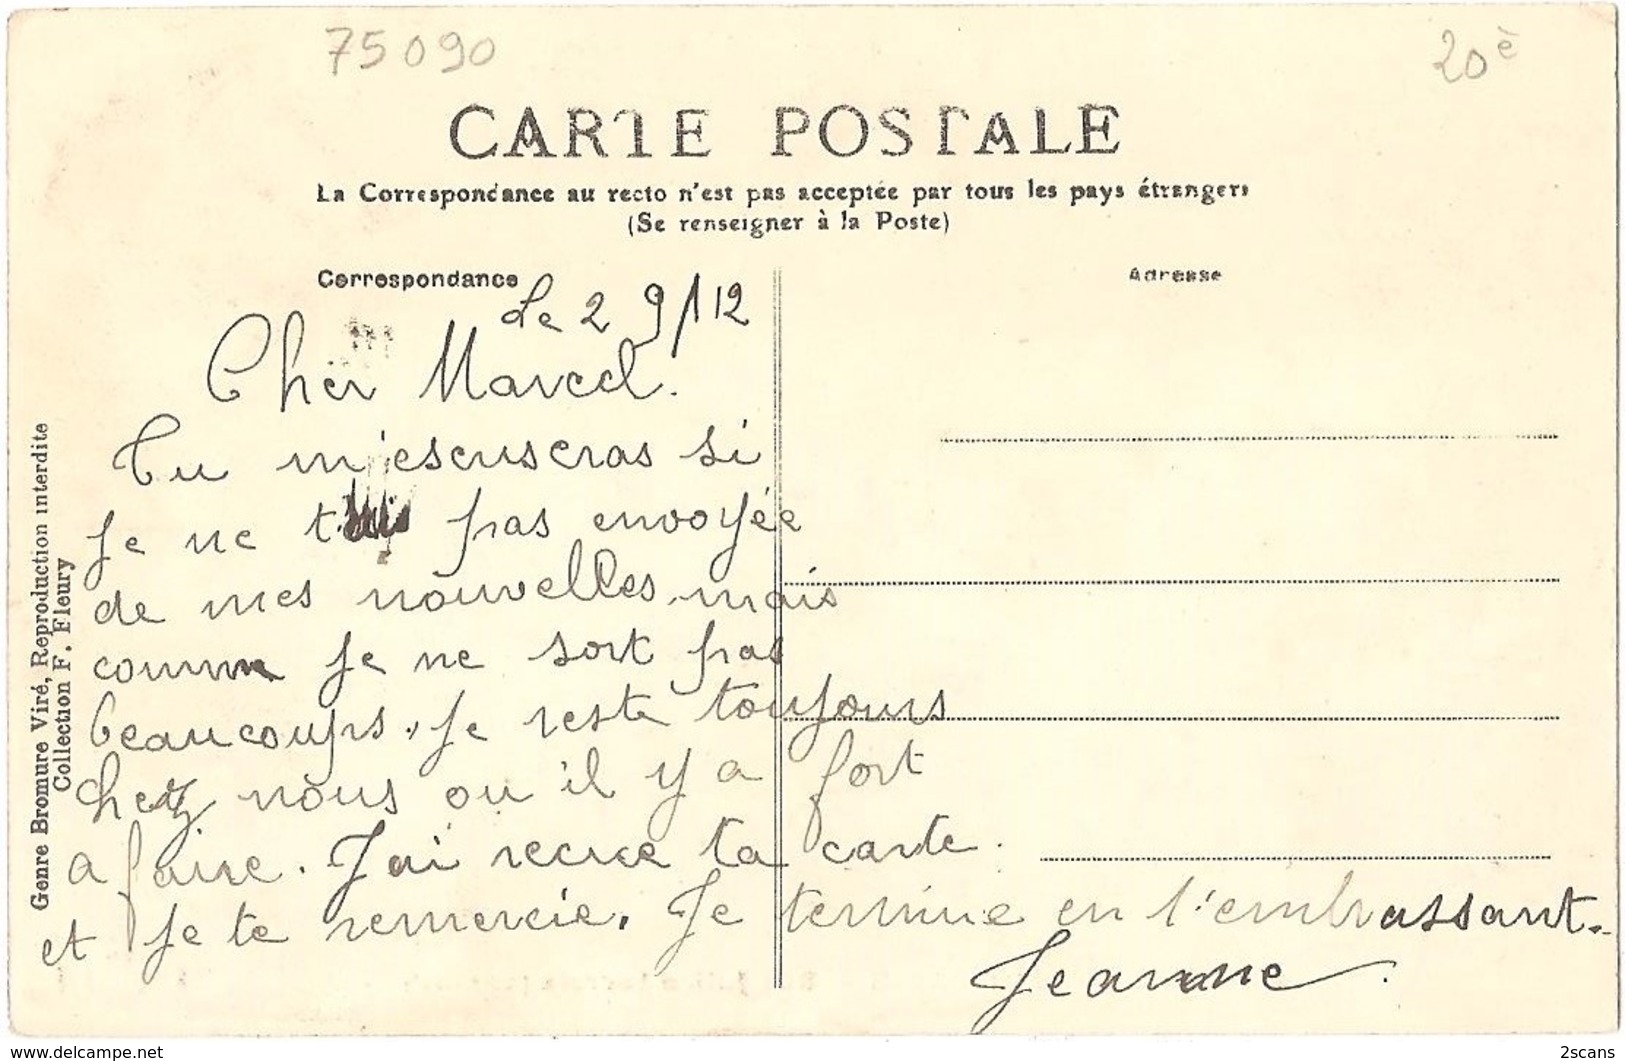 75090
20è
CARTE POSTALE
La Correspondance au recto n'est pas acceptée par tous les pays étrangers
(Se renseigner à la Poste)
Correspondance
Adresse
Le 2 9/12
Cher Marcel.
Tu m'escuseras si
je ne t'ai pas envoyée
de mes nouvelles, mais
comme je ne sort pas
beaucoups, je reste toujours
chez nous ou il y a fort
a faire. J'ai recue ta carte.
et je te remercie. Je termine en t'embrassant.
Jeanne.
Genre Bromure Viré, Reproduction interdite
Collection F. Fleury
delcampe.net
2scans